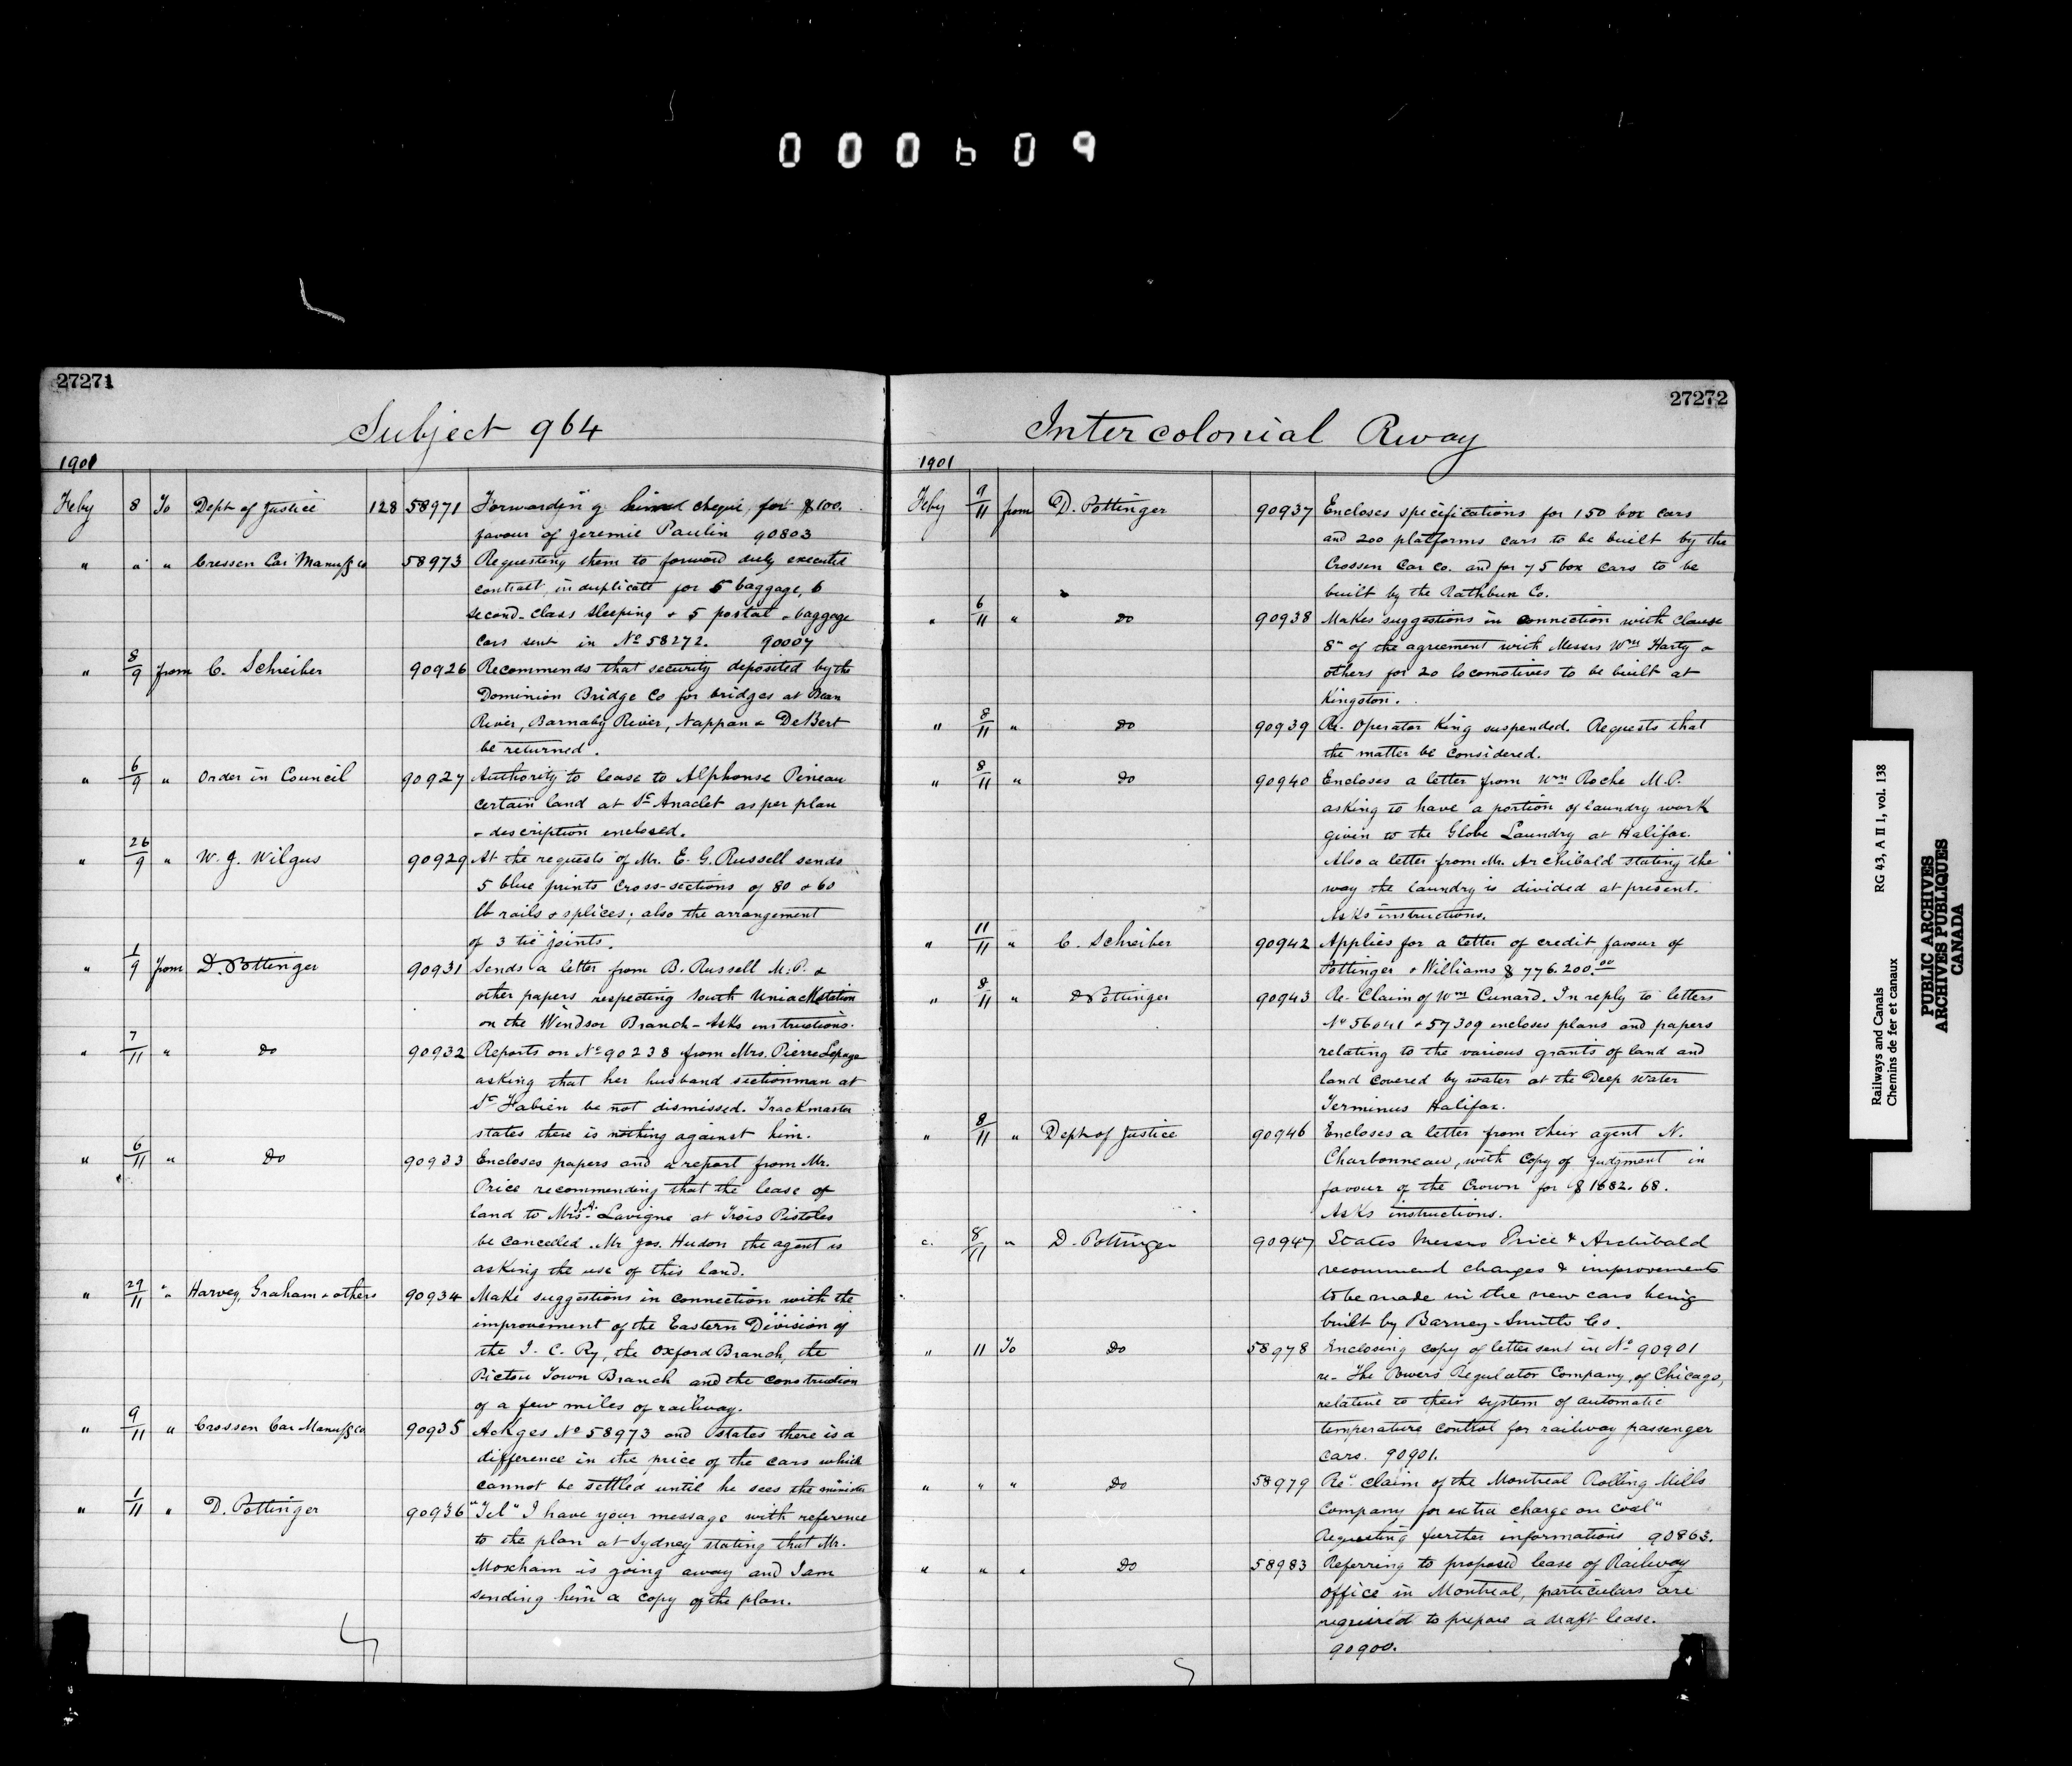 000609
27271
Subject 964
1901
Feby 8 To Dept of Justice 128 58971 Forwarding him cheque for $100.
favour of Jeremie Paulin 90803
" " " Crossen Car Manufg Co 58973 Requesting them to forward duly executed
contract in duplicate for 5 baggage, 6
second-class sleeping & 5 postal & baggage
cars sent in No 58272. 90007
" 8/9 from C. Schreiber 90926 Recommends that security deposited by the
Dominion Bridge Co for bridges at Bean
River, Barnaby River, Nappan & DeBert
be returned.
" 6/9 " Order in Council 90927 Authority to lease to Alphonse Pineau
certain land at St Anaclet as per plan
& description enclosed.
" 26/9 " W. J. Wilgus 90929 At the requests of Mr. E. G. Russell sends
5 blue prints cross-sections of 80 & 60
lb rails & splices; also the arrangement
of 3 tie joints.
" 1/9 from D. Pottinger 90931 Sends a letter from B. Russell M.P. &
other papers respecting South Uniack station
on the Windsor Branch - Asks instructions.
" 7/11 " Do 90932 Reports on No 90238 from Mrs. Pierre Lepage
asking that her husband sectionman at
St Fabien be not dismissed. Trackmaster
states there is nothing against him.
" 6/11 " Do 90933 Encloses papers and a report from Mr.
Price recommending that the lease of
land to Mrs. J.A. Lavigne at Trois Pistoles
be cancelled. Mr Jos. Hudon the agent is
asking the use of this land.
" 29/11 " Harvey, Graham & others 90934 Make suggestions in connection with the
improvement of the Eastern Division of
the I. C. Ry, the Oxford Branch, the
Pictou Town Branch and the construction
of a few miles of railway.
" 9/11 " Crossen Car Manufg Co 90935 Ackges No 58973 and states there is a
difference in the price of the cars which
cannot be settled until he sees the minister
" 1/11 " D. Pottinger 90936 "Tel" I have your message with reference
to the plan at Sydney stating that Mr.
Moxham is going away and I am
sending him a copy of the plan.
27272
Intercolonial Rway
1901
Feby 9/11 from D. Pottinger 90937 Encloses specifications for 150 box cars
and 200 platforms cars to be built by the
Crossen Car Co. and for 75 box cars to be
built by the Rathbun Co.
" 6/11 " Do 90938 Makes suggestions in connection with clause
8" of the agreement with Messrs Wm Harty &
others for 20 locomotives to be built at
Kingston.
" 8/11 " Do 90939 Re. Operator King suspended. Requests that
the matter be considered.
" 8/11 " Do 90940 Encloses a letter from Wm Roche M.P.
asking to have a portion of laundry work
given to the Globe Laundry at Halifax.
Also a letter from Mr. Archibald stating the
way the laundry is divided at present.
Asks instructions.
" 11/11 " C. Schreiber 90942 Applies for a letter of credit favour of
Pottinger & Williams $776.200.00
" 8/11 " D Pottinger 90943 Re- Claim of Wm Cunard. In reply to letters
No 56041 & 57309 encloses plans and papers
relating to the various grants of land and
land covered by water at the Deep Water
Terminus Halifax.
" 8/11 " Dept of Justice 90946 Encloses a letter from their agent N.
Charbonneau, with copy of judgment in
favour of the Crown for $1682.68.
Asks instructions.
" 8/11 " D. Pottinger 90947 States Messrs Price & Archibald
recommend changes & improvements
to be made in the new cars being
built by Barney-Smith Co.
" 11 To Do 58978 Enclosing copy of letter sent in No 90901
re- The Powers Regulator Company, of Chicago,
relative to their system of automatic
temperature control for railway passenger
cars. 90901.
" " " Do 58979 Re "claim of the Montreal Rolling Mills
Company for extra charge on coal"
Requesting further informations 90863.
" " " Do 58983 Referring to proposed lease of Railway
office in Montreal, particulars are
required to prepare a draft lease.
90900.
Railways and Canals RG 43, A II 1, vol. 138
Chemins de fer et canaux
PUBLIC ARCHIVES
ARCHIVES PUBLIQUES
CANADA